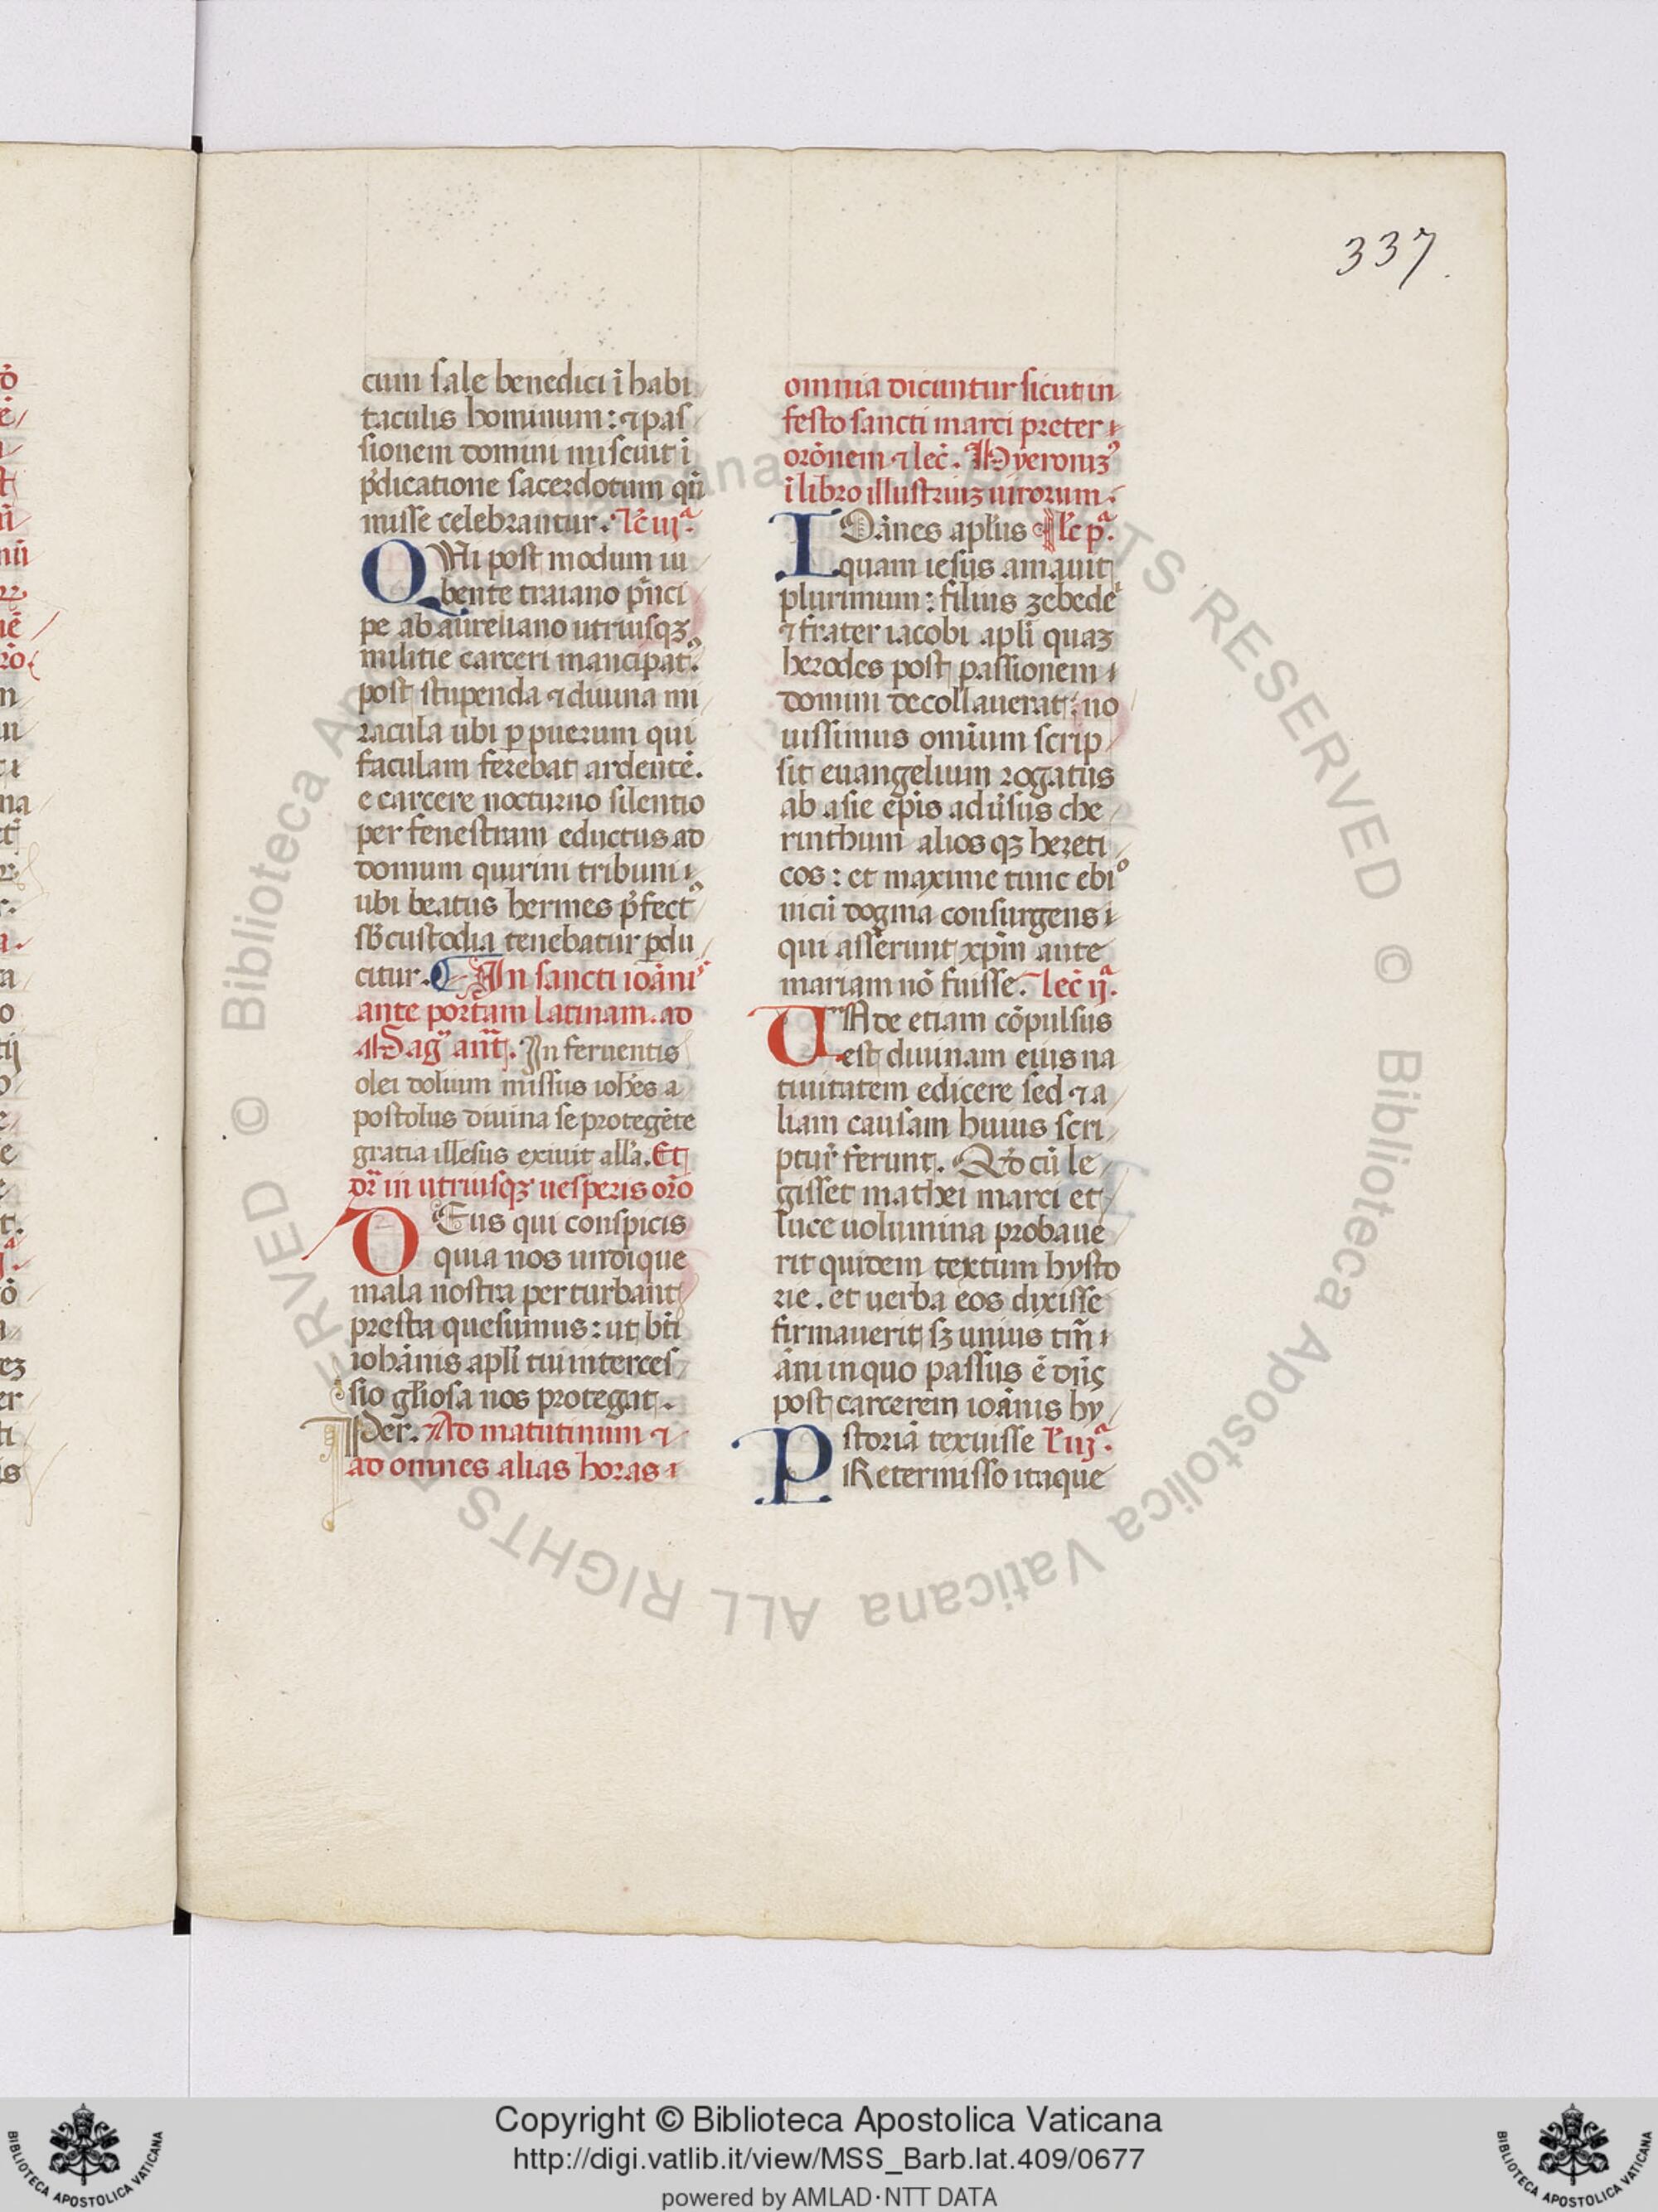 337.
cum sale benedici ī habi
taculis hominum: ⁊ pas
sionem domini miscuit ī
p̄dicatione sacerdotum qn̄
misse celebrantur. lc̄ iijᵃ.
QUi post modum iu
bente traiano p̄nci
pe ab aureliano utriusqꝫ
militie carceri mancipatꝰ.
post stupenda ⁊ diuina mi
racula ubi ꝑ puerum qui
faculam ferebat ardentē.
e carcere nocturno silentio
per fenestram eductus ad
domum quirini tribuni
ubi beatus hermes p̄fectꝰ
sb̄ custodia tenebatur ꝑdu
citur. ¶ In sancti ioāniˢ
ante portam latinam. ad
Maḡ ant̄. In feruentis
olei dolium missus ioh̄es a
postolus diuina se protegēte
gratia illesus exiuit all̄a. Et
dr̄ in utriusqꝫ uesperis orō
DEus qui conspicis
quia nos undique
mala nostra perturbant
presta quesumus: ut bt̄i
iohānis apl̄i tui interces
sio gl̄iosa nos protegat.
Per. Ad matutinum ⁊
ad omnes alias horas
omnia dicuntur sicut in
festo sancti marci preter
orōnem ⁊ lec̄. Hyeronimꝰ
ī libro illustriuꝫ uirorum.
IOānes apl̄us lc̄ pᵃ.
quam iesus amauit
plurimum: filius zebedeⁱ
⁊ frater iacobi apl̄i quaꝫ
herodes post passionem
domini decollauerat: no
uissimus omīum scrip
sit euangelium rogatus
ab asie ep̄is adūsus che
rinthum alios qꝫ hereti
cos: et maxime tunc ebiᵒ
nitū dogma consurgens
qui asserunt xp̄m ante
mariam nō fuisse. lec̄ ijᵃ.
UNde etiam cōpulsus
est diuinam eius na
tiuitatem edicere sed ⁊ a
liam causam huius scri
ptur̄ ferunt. Qd̄ cū le
gisset mathei marci et
luce uolumina probaue
rit quidem textum hysto
rie. et uerba eos dixisse
firmauerit sꝫ unius tm̄
āni in quo passus ē dn̄s
post carcerem ioānis hy
storiā texuisse l̄ iijᵃ.
PRetermisso itaque
Copyright © Biblioteca Apostolica Vaticana
http://digi.vatlib.it/view/MSS_Barb.lat.409/0677
powered by AMLAD·NTT DATA